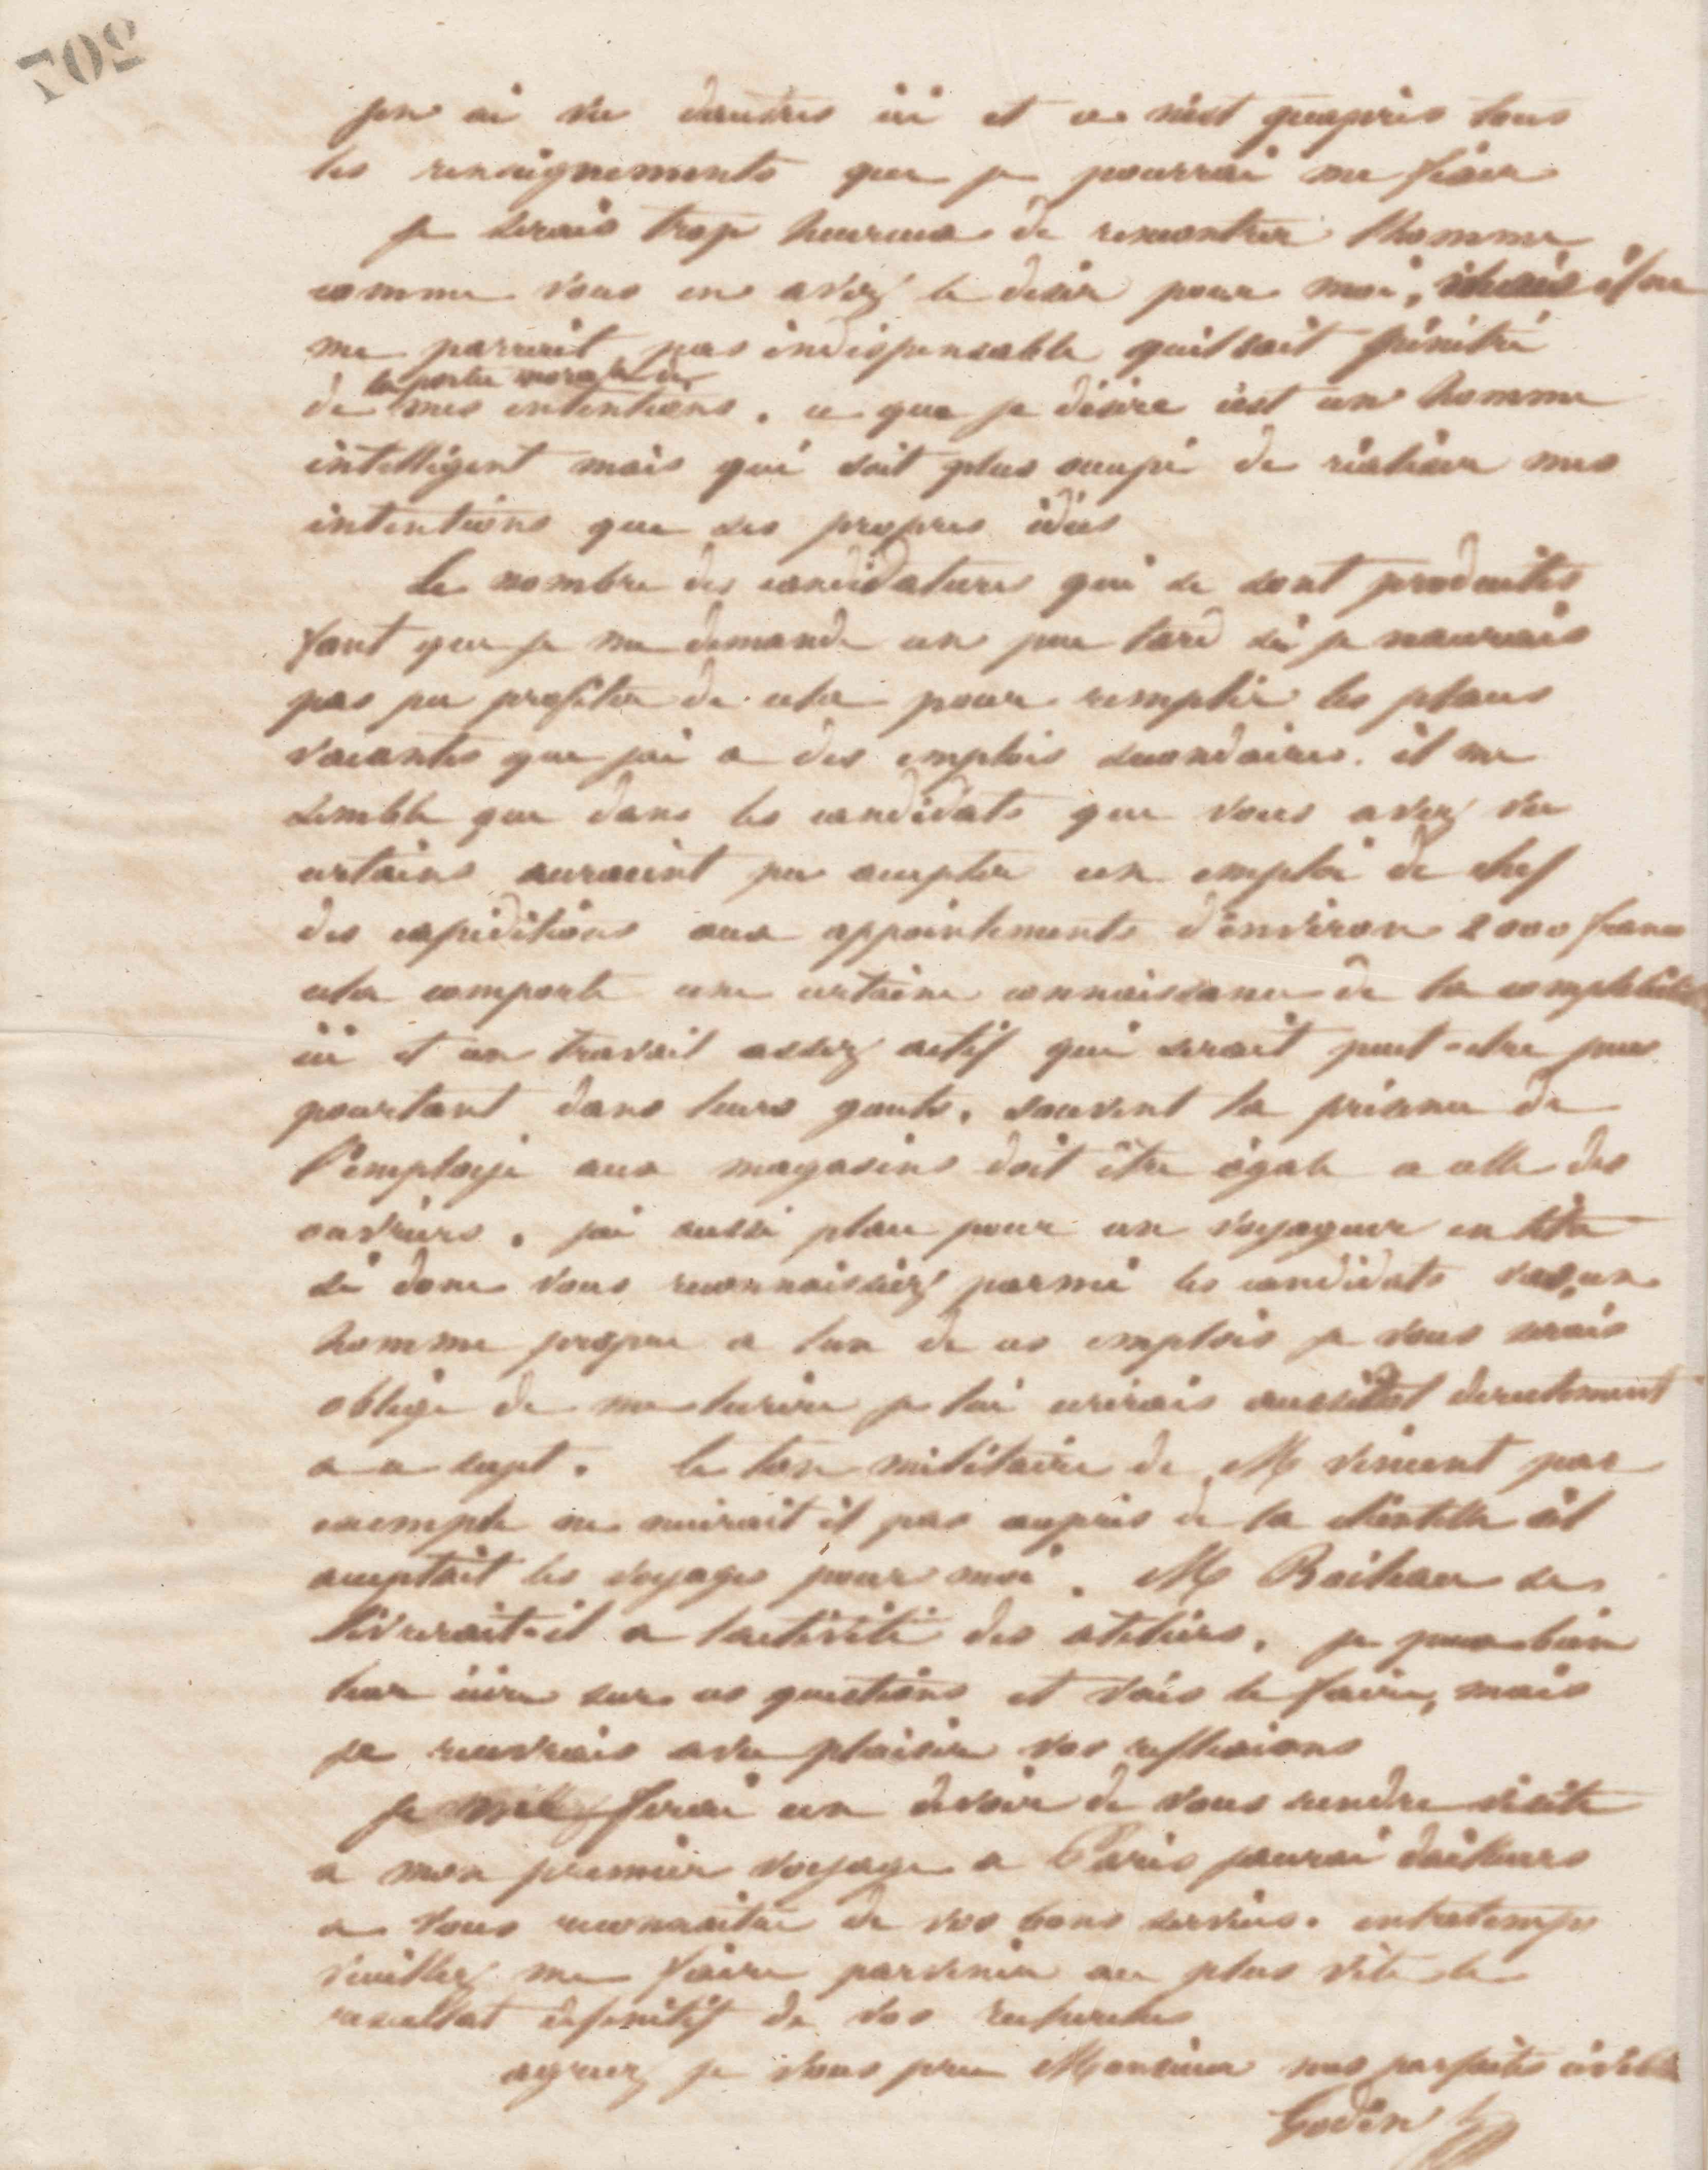 702
j'en ai vu d'autres ici et ce n'est qu'après tous
les renseignements que je pourrai me fixer
je serais trop heureux de rencontrer l'homme
comme vous en avez le désir pour moi, mais il ne
me parrait pas indispensable qu'il soit pénétré
de la portée morale de
mes intentions. ce que je désire c'est un homme
intelligent mais qui soit plus occupé de réaliser mes
intentions que ses propres idées
Le nombre des candidatures qui se sont produites
font que je me demande un peu tard si je n'aurais
pas pu profiter de cela pour remplir les places
vacantes que j'ai a des emplois secondaires. il me
semble que dans les candidats que vous avez vu
certains auraient pu accepter un emploi de chef
des expéditions aux appointements d'environ 2000 francs
cela comporte une certaine connaissance de la comptabilité
ici et un travail assez actif qui serait peut-etre peu
pourtant dans leurs gouts. souvent la présence de
l'employé aux magasins doit être égale a celle des
ouvriers. j'ai aussi place pour un voyageur en
si donc vous reconnaissiez parmi les candidats un
homme propre a l'un de ces emplois je vous serais
obligé de me l'ecrire je lui ecrirais aussitot directement
a ce sujet. le ton militaire de M Vincent par
exemple ne nuirait il pas auprès de la clientelle s'il
acceptait les voyages pour moi. M Boileau se
livrerait-il a l'activité des ateliers. je peux bien
leur écrire sur ces questions et vais le faire, mais
je recevrais avec plaisir vos reflexions
je me ferai un devoir de vous rendre visite
a mon premier voyage a Paris j'aurai d'ailleurs
a vous reconnaitre de vos bons services. entretemps
veuillez me faire parvenir au plus vite le
resultat définitif de vos recherches
agreez je vous prie Monsieur mes parfaites civilités
Godin